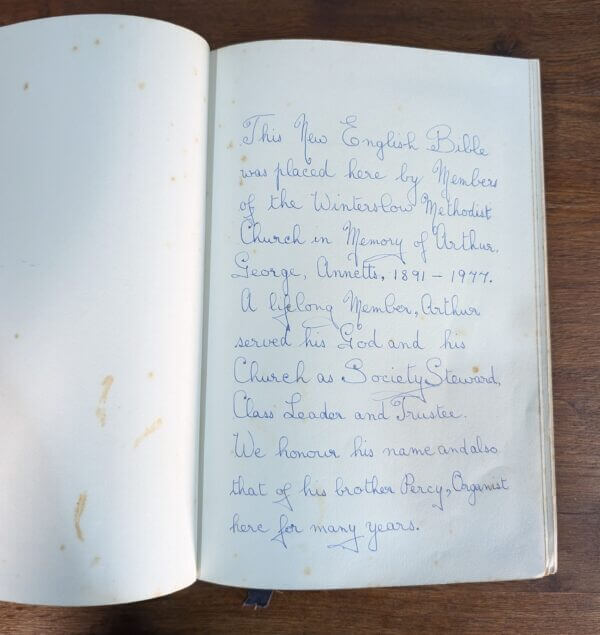 This New English Bible
was placed here by Members
of the Winterslow Methodist
Church in Memory of Arthur,
George, Annetts, 1891 - 1977.
A lifelong Member, Arthur
served his God and his
Church as Society Steward,
Class Leader and Trustee.
We honour his name and also
that of his brother Percy, Organist
here for many years.